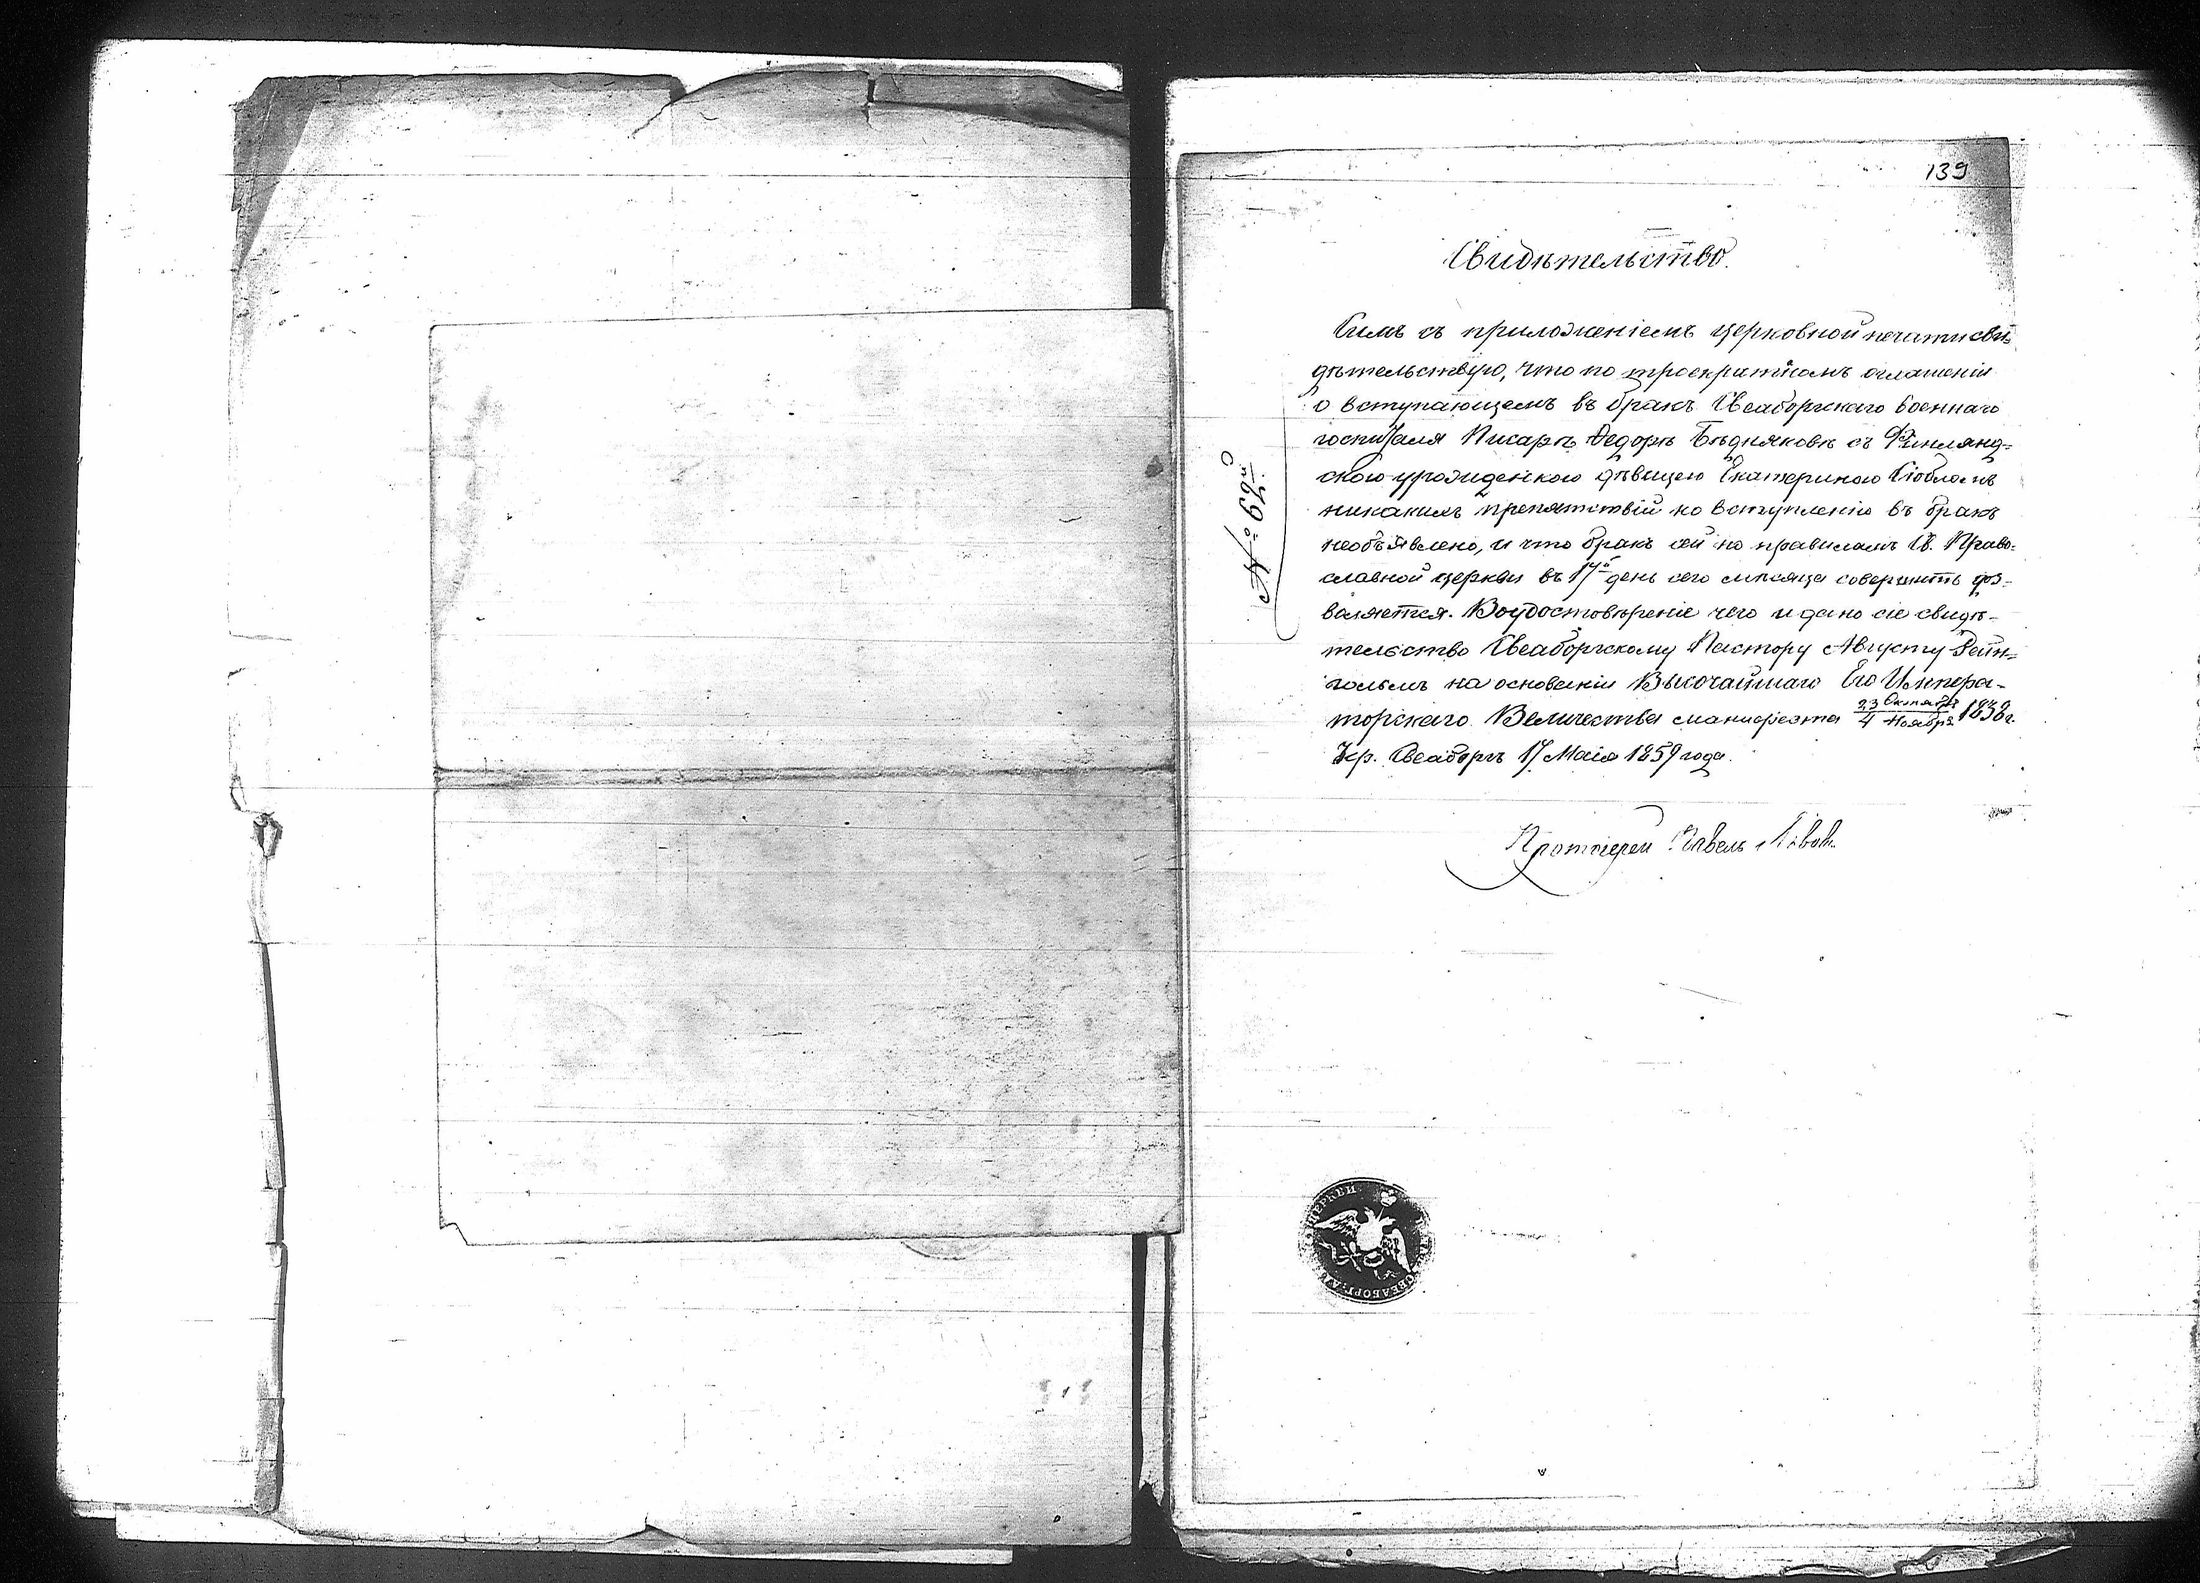 139
Свидѣтельство.
Симъ съ приложеніемъ церковной печати сви-
дѣтельствую, что по троекратномъ оглашеніи
о вступающемъ въ бракъ Свеаборгскаго военнаго
госпиталя Писарѣ Ѳедорѣ Бѣдняковѣ съ Финлянд-
скою уроженкою дѣвицею Екатериною
никакихъ препятствій ко вступленію въ бракъ
необъявлено, и что бракъ сей по правиламъ Св. Право-
славной церкви въ 17й день сего мѣсяца совершить доз-
воляется. Воудостовѣреніе чего и дано сіе свидѣ-
тельство Свеаборгскому Пастору Августу Рейн-
гольмъ на основаніи Высочайшаго Его Импера-
торскаго Величества манифеста 23 Октября / 4 Ноября 1838г.
Кр. Свеаборгъ 17 Маія 1859 года.
№ 62й
Протоіерей Павель
ЦЕРКВИ